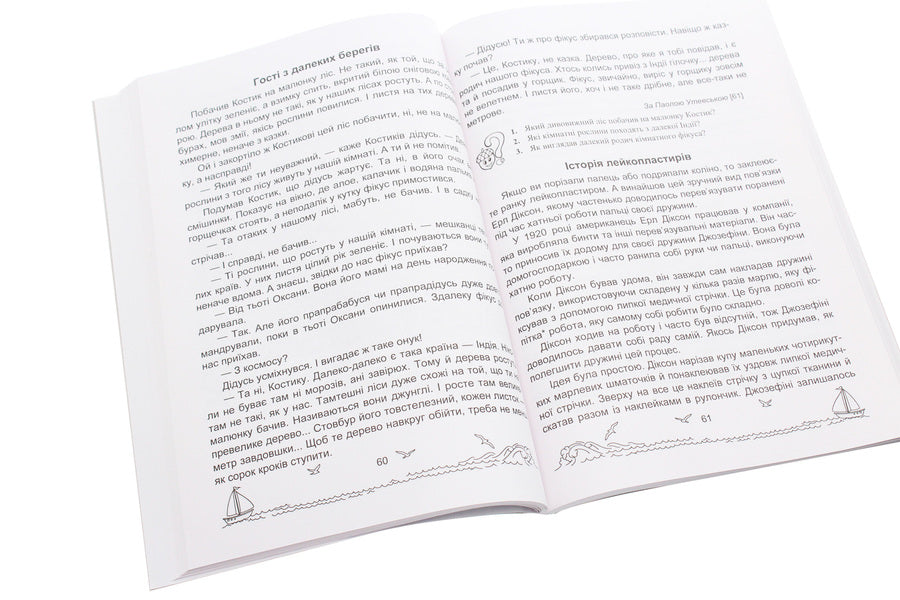 Гості з далеких берегів
Побачив Костик на малюнку ліс. Не такий, як той, що за
лом улітку зеленіє, а взимку спить, вкритий білою сніговою
рою. Дерева в ньому не такі, як у наших лісах ростуть. А по
бурах, мов змії, якісь рослини повилися. І листя на тих дере
химерне, неначе з казки.
Ой і закортіло ж Костикові цей ліс побачити, ні, не на ма
ку, а насправді!
— Який же ти неуважний, — каже Костиків дідусь. —
рослини з того лісу живуть у нашій кімнаті. А ти й не помітив
Подумав Костик, що дідусь жартує. Та ні, в його очах
смішинки. Показує на вікно, де алое, калачик і водяна пальма
горщечках стоять, а неподалік у кутку фікус примостився.
— Та отаких у нашому лісі, мабуть, не бачив. І в садку
стрічав...
— І справді, не бачив...
— Ті рослини, що ростуть у нашій кімнаті, — мешканці
лих країв. У них листя цілий рік зеленіє. І почуваються вони
неначе вдома. А знаєш, звідки до нас фікус приїхав?
— Від тьоті Оксани. Вона його мамі на день народження
дарувала.
— Так. Але його прапрабабуся чи прапрадідусь дуже
мандрували, поки в тьоті Оксани опинилися. Здалеку фікус
нас приїхав.
— З космосу?
Дідусь усміхнувся. І вигадає ж таке онук!
— Та ні, Костику. Далеко-далеко є така країна — Індія.
ли не буває там ні морозів, ані завірюх. Тому й дерева рост
там не такі, як у нас. Тамтешні ліси дуже схожі на той, що ти
малюнку бачив. Називаються вони джунглі. І росте там вели
превелике дерево... Стовбур його товстелезний, кожен листок
метр завдовшки... Щоб те дерево навкруг обійти, треба не мен
як сорок кроків ступити.
60
— Дідусю! Ти ж про фікус збирався розповісти. Навіщо ж каз-
ку почав?
— Це, Костику, не казка. Дерево, про яке я тобі повідав, і є
родич нашого фікуса. Хтось колись привіз з Індії гілочку... дерева
та й посадив у горщик. Фікус, звичайно, виріс у горщику зовсім
не велетнем. І листя його, хоч і не таке дрібне, але все-таки не
метрове.
За Паолою Утевською [61]
1. Який дивовижний ліс побачив на малюнку Костик?
2. Які кімнатні рослини походять з далекої Індії?
3. Як виглядав далекий родич кімнатного фікуса?
Історія лейкопластирів
Якщо ви порізали палець або подряпали коліно, то заклеює-
те ранку лейкопластирем. А винайшов цей зручний вид пов'язки
Ерл Діксон, якому частенько доводилось перев'язувати поранені
під час хатньої роботи пальці своєї дружини.
У 1920 році американець Ерл Діксон працював у компанії,
яка виробляла бинти та інші перев'язувальні матеріали. Він час-
то приносив їх додому для своєї дружини Джозефіни. Вона була
домогосподаркою і часто ранила собі руки чи пальці, виконуючи
хатню роботу.
Коли Діксон бував удома, він завжди сам накладав дружині
пов'язку, використовуючи складену у кілька разів марлю, яку фі-
ксував з допомогою липкої медичної стрічки. Це була доволі ко-
пітка* робота, яку самому собі робити було складно.
Діксон ходив на роботу і часто був відсутній, тож Джозефіні
доводилось давати собі раду самій. Якось Діксон придумав, як
полегшити дружині цей процес.
Ідея була простою. Діксон нарізав купу маленьких чотирикут-
них марлевих шматочків й понаклеював їх уздовж липкої медич-
ної стрічки. Зверху на все це наклеїв стрічку з цупкої тканини й
скатав разом із наклейками в рулончик. Джозефіні залишалось
61